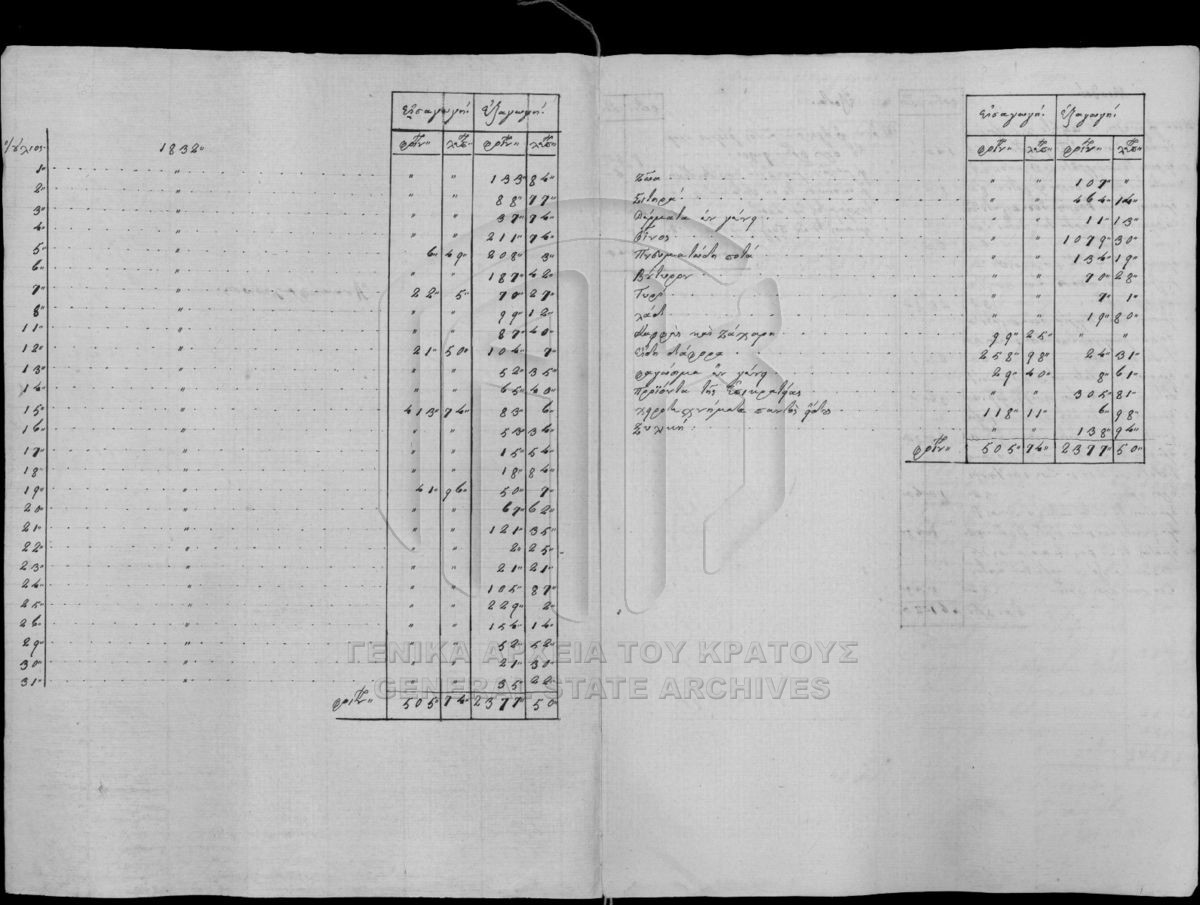 Εἰσαγωγή. Ἐξαγωγή.
Ἰούλιος 1832" φοίν" λεπ" φοίν" λεπ"
1" " " " 133" 84"
2" " " " 88" 77"
3" " " " 37" 74"
4" " " " 211" 74"
5" " 6" 49" 208" 3"
6" " " " 187" 42"
7" " 22" 5" 70" 27"
8" " " " 99" 12"
11" " " " 87" 40"
12" " 21" 50" 104" 7"
13" " " " 52" 35"
14" " " " 65" 43"
15" " 413" 74" 83" 6"
16" " " " 53" 34"
17" " " " 15" 54"
18" " " " 18" 84"
19" " 41" 96" 50" 7"
20" " " " 67" 62"
21" " " " 121" 35"
22" " " " 2" 25"
23" " " " 21" 21"
24" " " " 105" 87"
25" " " " 229" 2"
26" " " " 154" 14"
29" " " " 52" 52"
30" " " " 21" 30"
31" " " " 35" 22"
φοίν" 505" 74" 2377" 50"
Εἰσαγωγή. Ἐξαγωγή.
φοίν" λεπ" φοίν" λεπ"
Ζῶα " " 107" "
Σιτηρά " " 464" 14"
Δέρματα ἐν γένει " " 11" 13"
Οἶνος " " 1079" 30"
Πνευματώδη ποτά " " 134" 19"
Βούτυρον " " 70" 28"
Τυρί " " 7" 1"
Λάδι " " 19" 80"
Καφφὲς καὶ Ζάχαρη 99" 25" " "
Εἴδη διάφορα 258" 98" 24" 31"
φαγώσιμα ἐν γένει 29" 40" 8" 61"
Προϊόντα τῆς Ἐπικρατείας " " 305" 81"
χειροτεχνήματα παντὸς εἴδους 118" 11" 6" 98"
Ξυλική " " 138" 94"
φοίν" 505" 74" 2377" 50"
ΓΕΝΙΚΑ ΑΡΧΕΙΑ ΤΟΥ ΚΡΑΤΟΥΣ
GENERAL STATE ARCHIVES